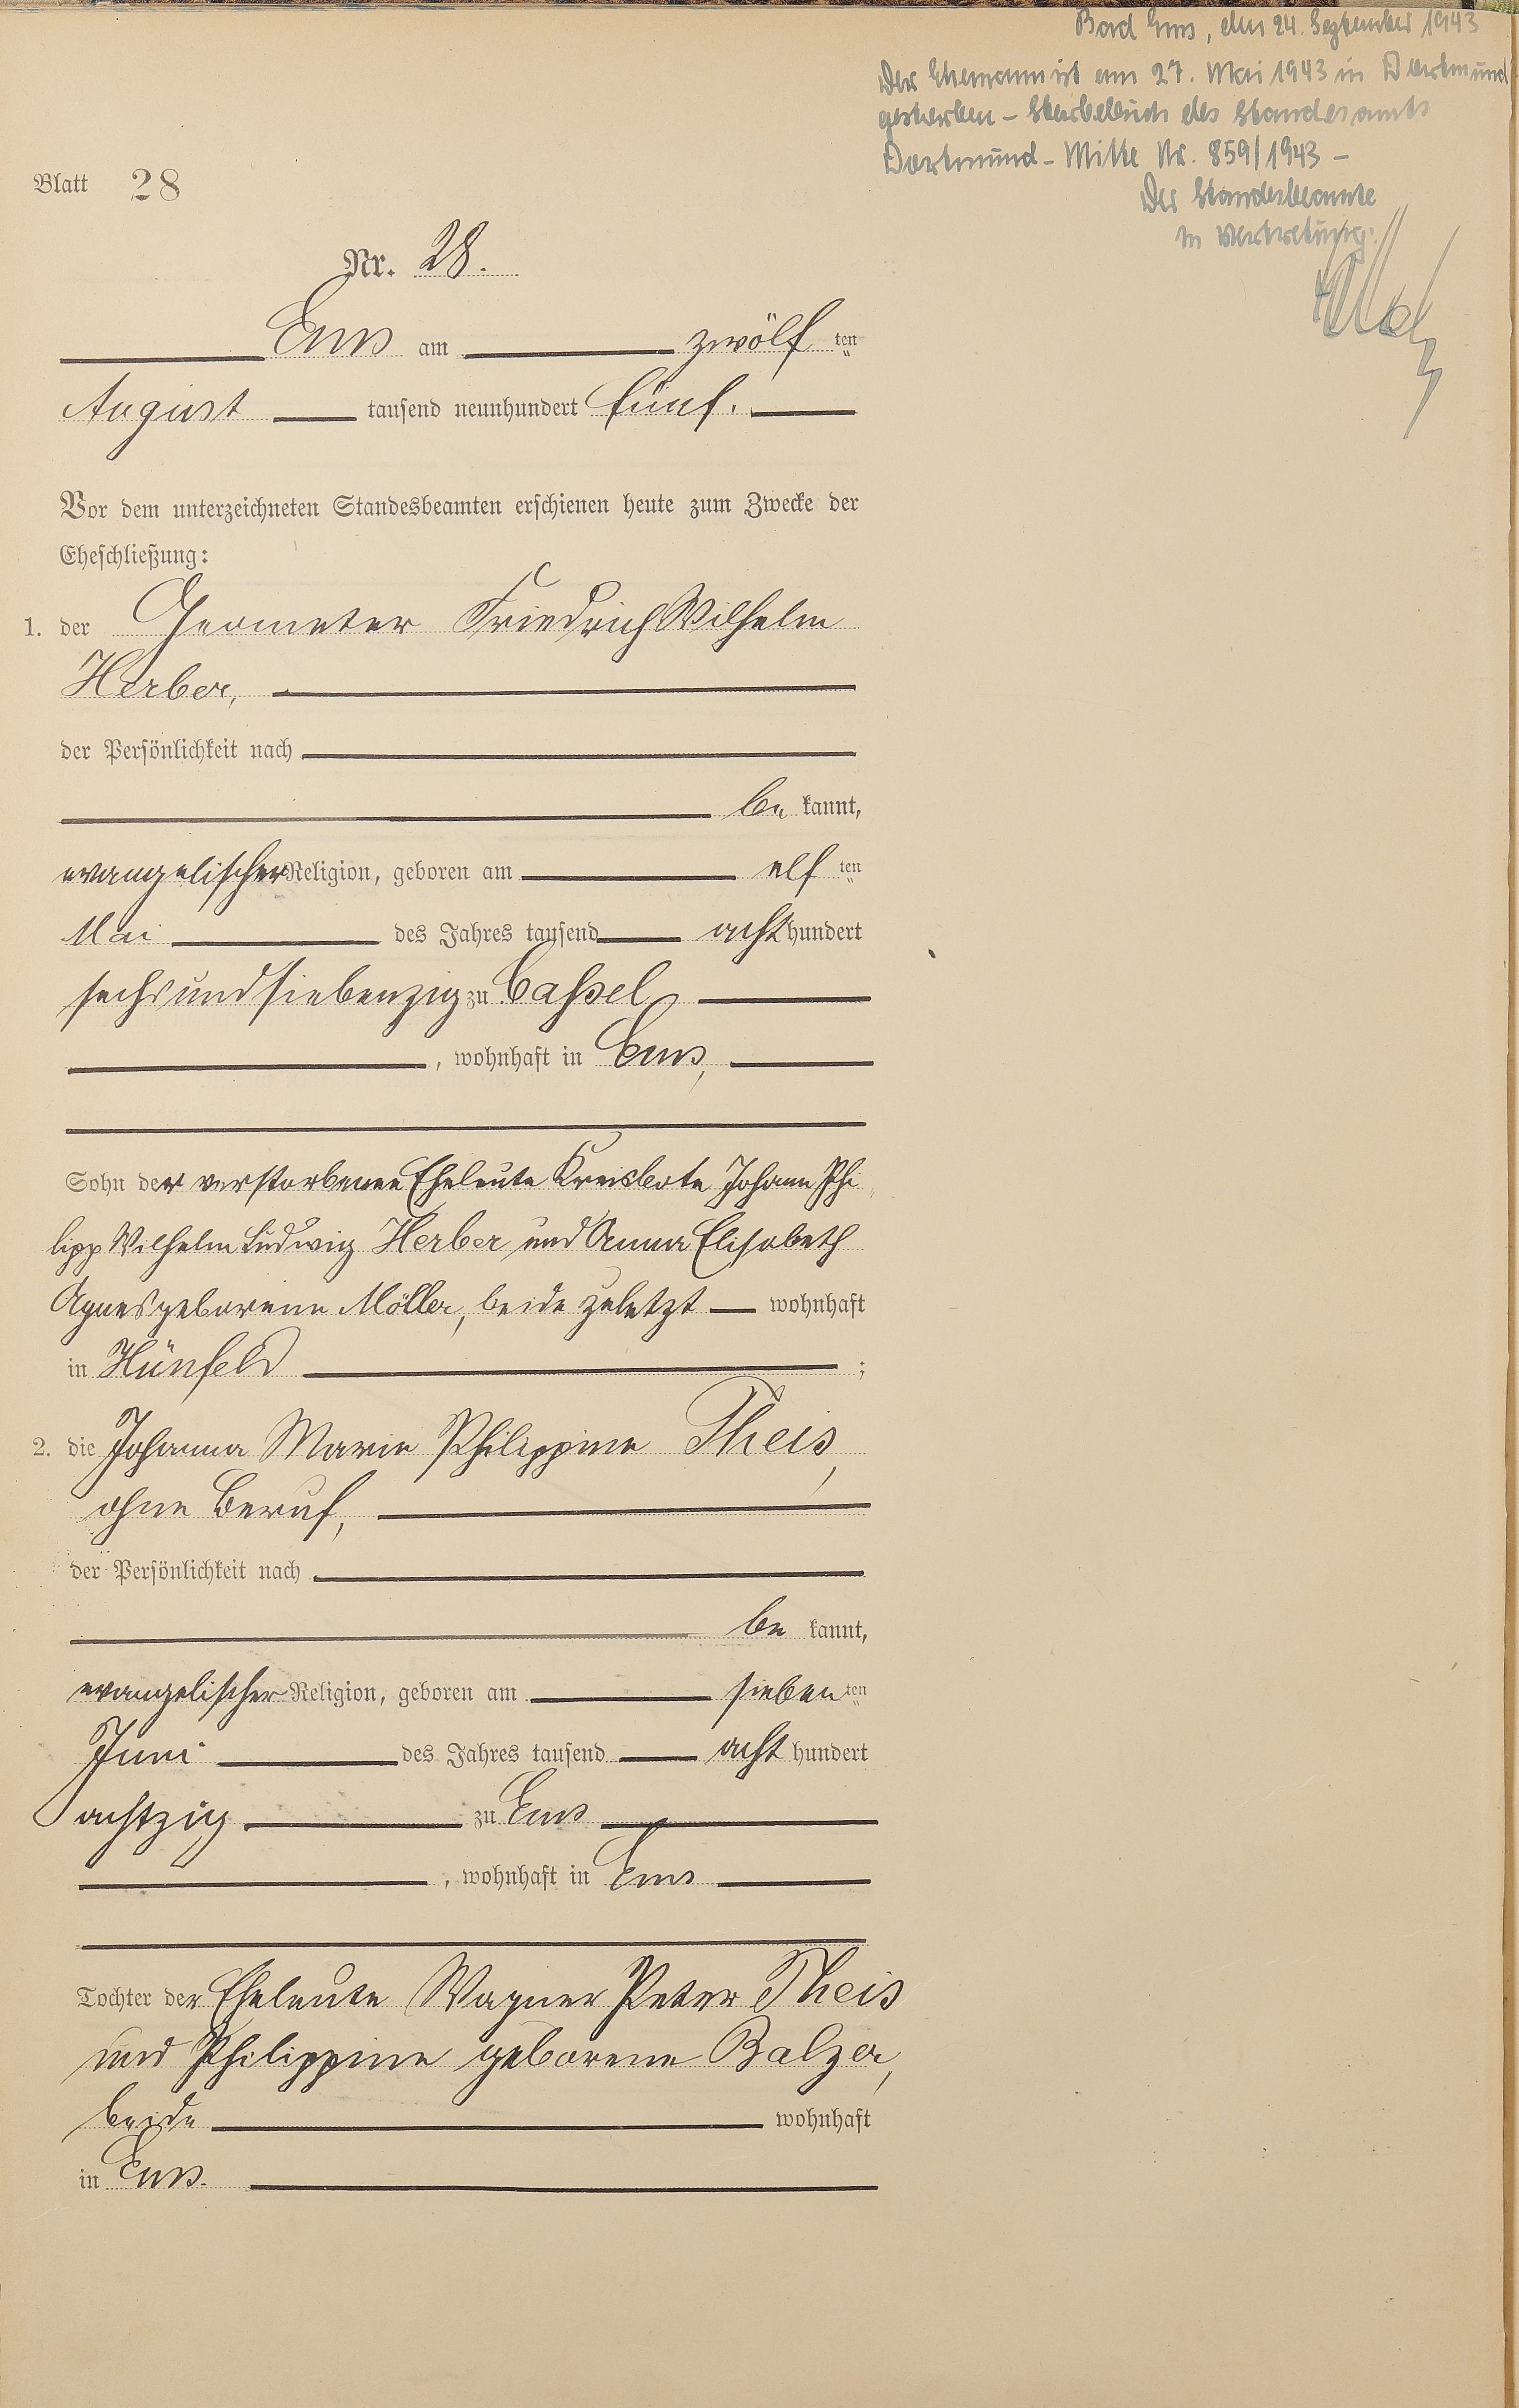 Bad Ems, den 24. September 1943
Der Ehemann ist am 27. Mai 1943 in Dortmund
gestorben – Sterbebuch des Standesamts
Dortmund – Mitte Nr. 859/1943 –
Der Standesbeamte
In Vertretung:
Blatt 28
Nr. 28.
Ems am zwölf ten
August tausend neunhundert fünf.
Vor dem unterzeichneten Standesbeamten erschienen heute zum Zwecke der
Eheschließung:
1. der Geometer Friedrich Wilhelm
Herber,
der Persönlichkeit nach
be kannt,
evangelischer Religion, geboren am elf ten
Mai des Jahres tausend acht hundert
sechsundsiebenzig zu Caßel
, wohnhaft in Ems,
Sohn der verstorbenen Eheleute Kreisbote Johann Phi
lipp Wilhelm Ludwig Herber und Anna Elisabeth
Agnes geborene Möller, beide zuletzt wohnhaft
in Hünfeld ;
2. die Johanna Marie Philippine Theis,
ohne Beruf,
der Persönlichkeit nach
be kannt,
evangelischer Religion, geboren am sieben ten
Juni des Jahres tausend acht hundert
achtzig zu Ems
, wohnhaft in Ems
Tochter der Eheleute Wagner Peter Theis
und Philippine geborene Balzer,
beide wohnhaft
in Ems.